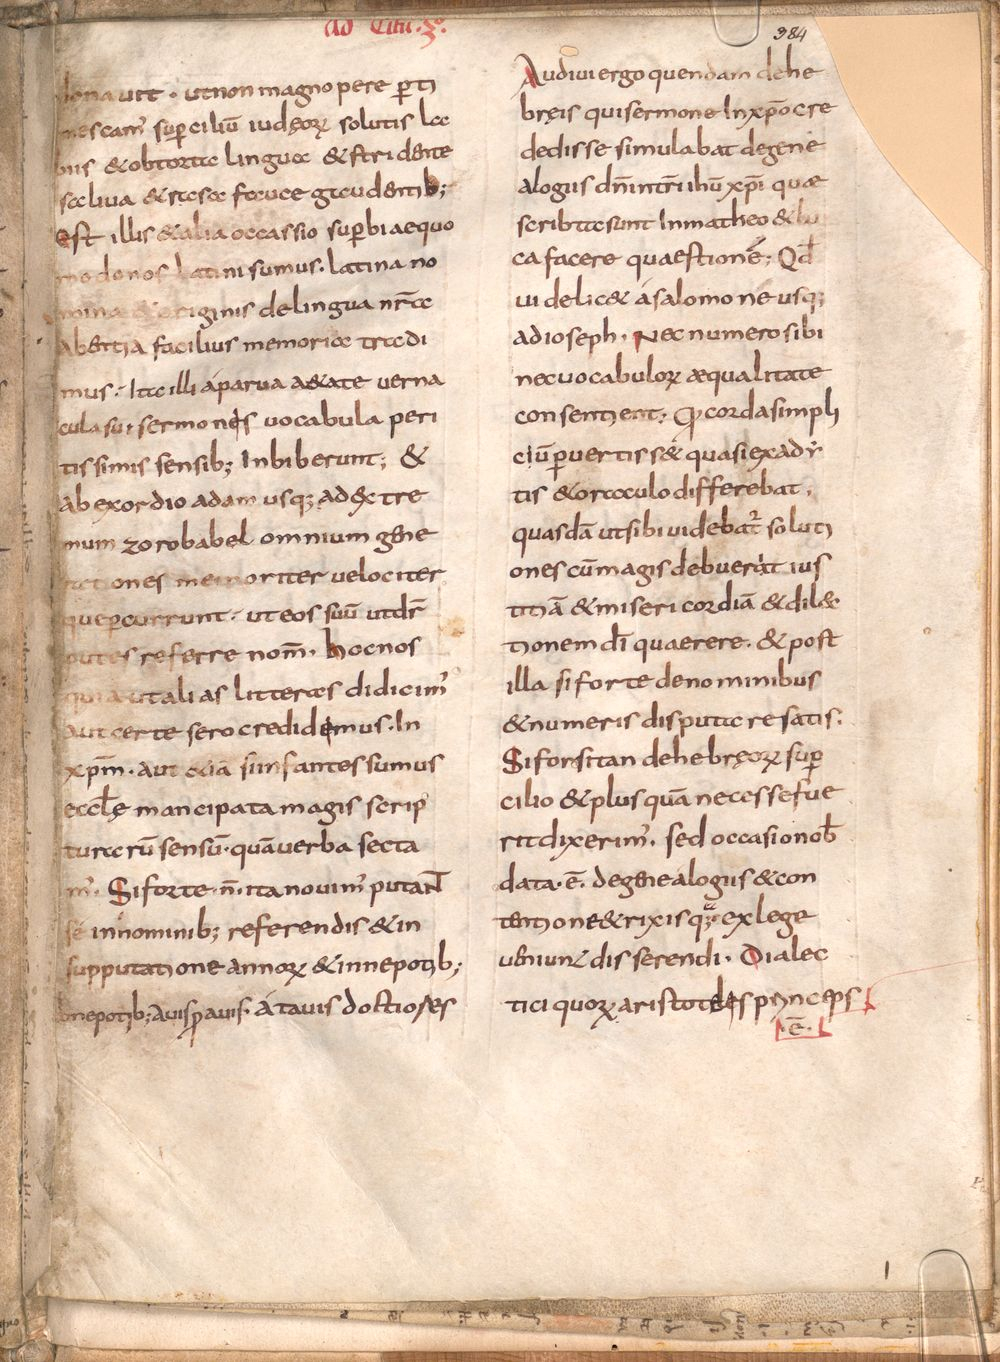 Ad Titū · 3º.
984
donauit · ut non magno pere ꝑti
mescam' sup̄ciliū iudęoꝝ solutis la
biis & obtorta lingua & stridente
saliua & rasa fauce gaudentib;
Est illis & alia occassio sup̄bia equo
modo nos latini sumus · latina no
mina & originis de lingua nr̄a
abentia facilius memoriae tradi
mus · Ita illi áparua a&ate uerna
cula sui sermonis uocabula peri
tissimis sensib; Inbiberunt; &
ab exordio adam usq; ad extre
mum zorobabel omnium gene
rationes memoriter uelociter
que ꝑcurrunt · ut eos suū utdr̄
putes referre nom̄ · hoc nos
quia ut ali as litteras didicim'
aut certe sero credidimus · In
xp̄m · aut &iā si infantes sumus
eccl̄ę mancipata magis scrip
turarū sensū · quā uerba secta
m' · Si forte · n̄ · ita nouim' putant
se in nominib; referendis & in
supputatione annoꝝ & in nepotib;
onepotib; auis ꝓauis · átauis doctiores
Audiui ergo quendam dehe
bręis qui sermone In xp̄o cre
dedisse simulabat degene
alogiis dn̄i nr̄i ihū xp̄i quae
scribtae sunt In matheo & lu
ca facere quaestionē; Qd̄
uidelic& ásalomone usq;
ad ioseph · Nec numero sibi
nec uocabuloꝝ æqualitate
consentient; Qꝫ corda simpli
ciū ꝑuertiss& quasi ex ady
tis & oraculo differebat,
quasdā ut sibi uidebat' soluti
ones cū magis debuerit ius
titiā & misericordiā & dile
tionem dī quaerere · & post
illa si forte de nominibus
& numeris disputare satis:
Si forsitan de hebręoꝝ sup̄
cilio & plus quā necesse fue
rit dixerim' · sed occasio nob̄
data · ē · de genealogiis & con
tentione & rixis q; ex lege
ueniunt disserendi · Dialec
tici quoꝝ aristoteles princeps
· ē ·